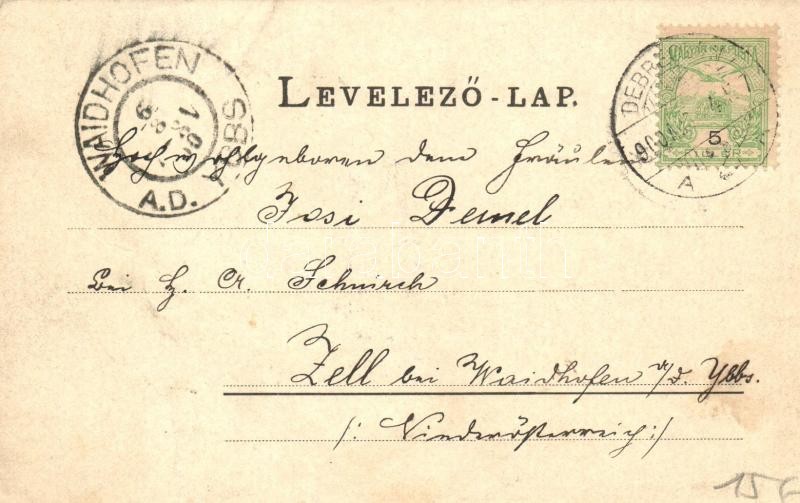 WAIDHOFEN
YBBS
A.D.
LEVELEZŐ-LAP.
DEBRE
MAGYAR KIR. POSTA
5
A
Hochwohlgeboren dem Fräulein
Josi Demel
bei H. Cr. Schnirch
Zell bei Waidhofen a/d. Ybbs.
(: Niederösterreich :)
15